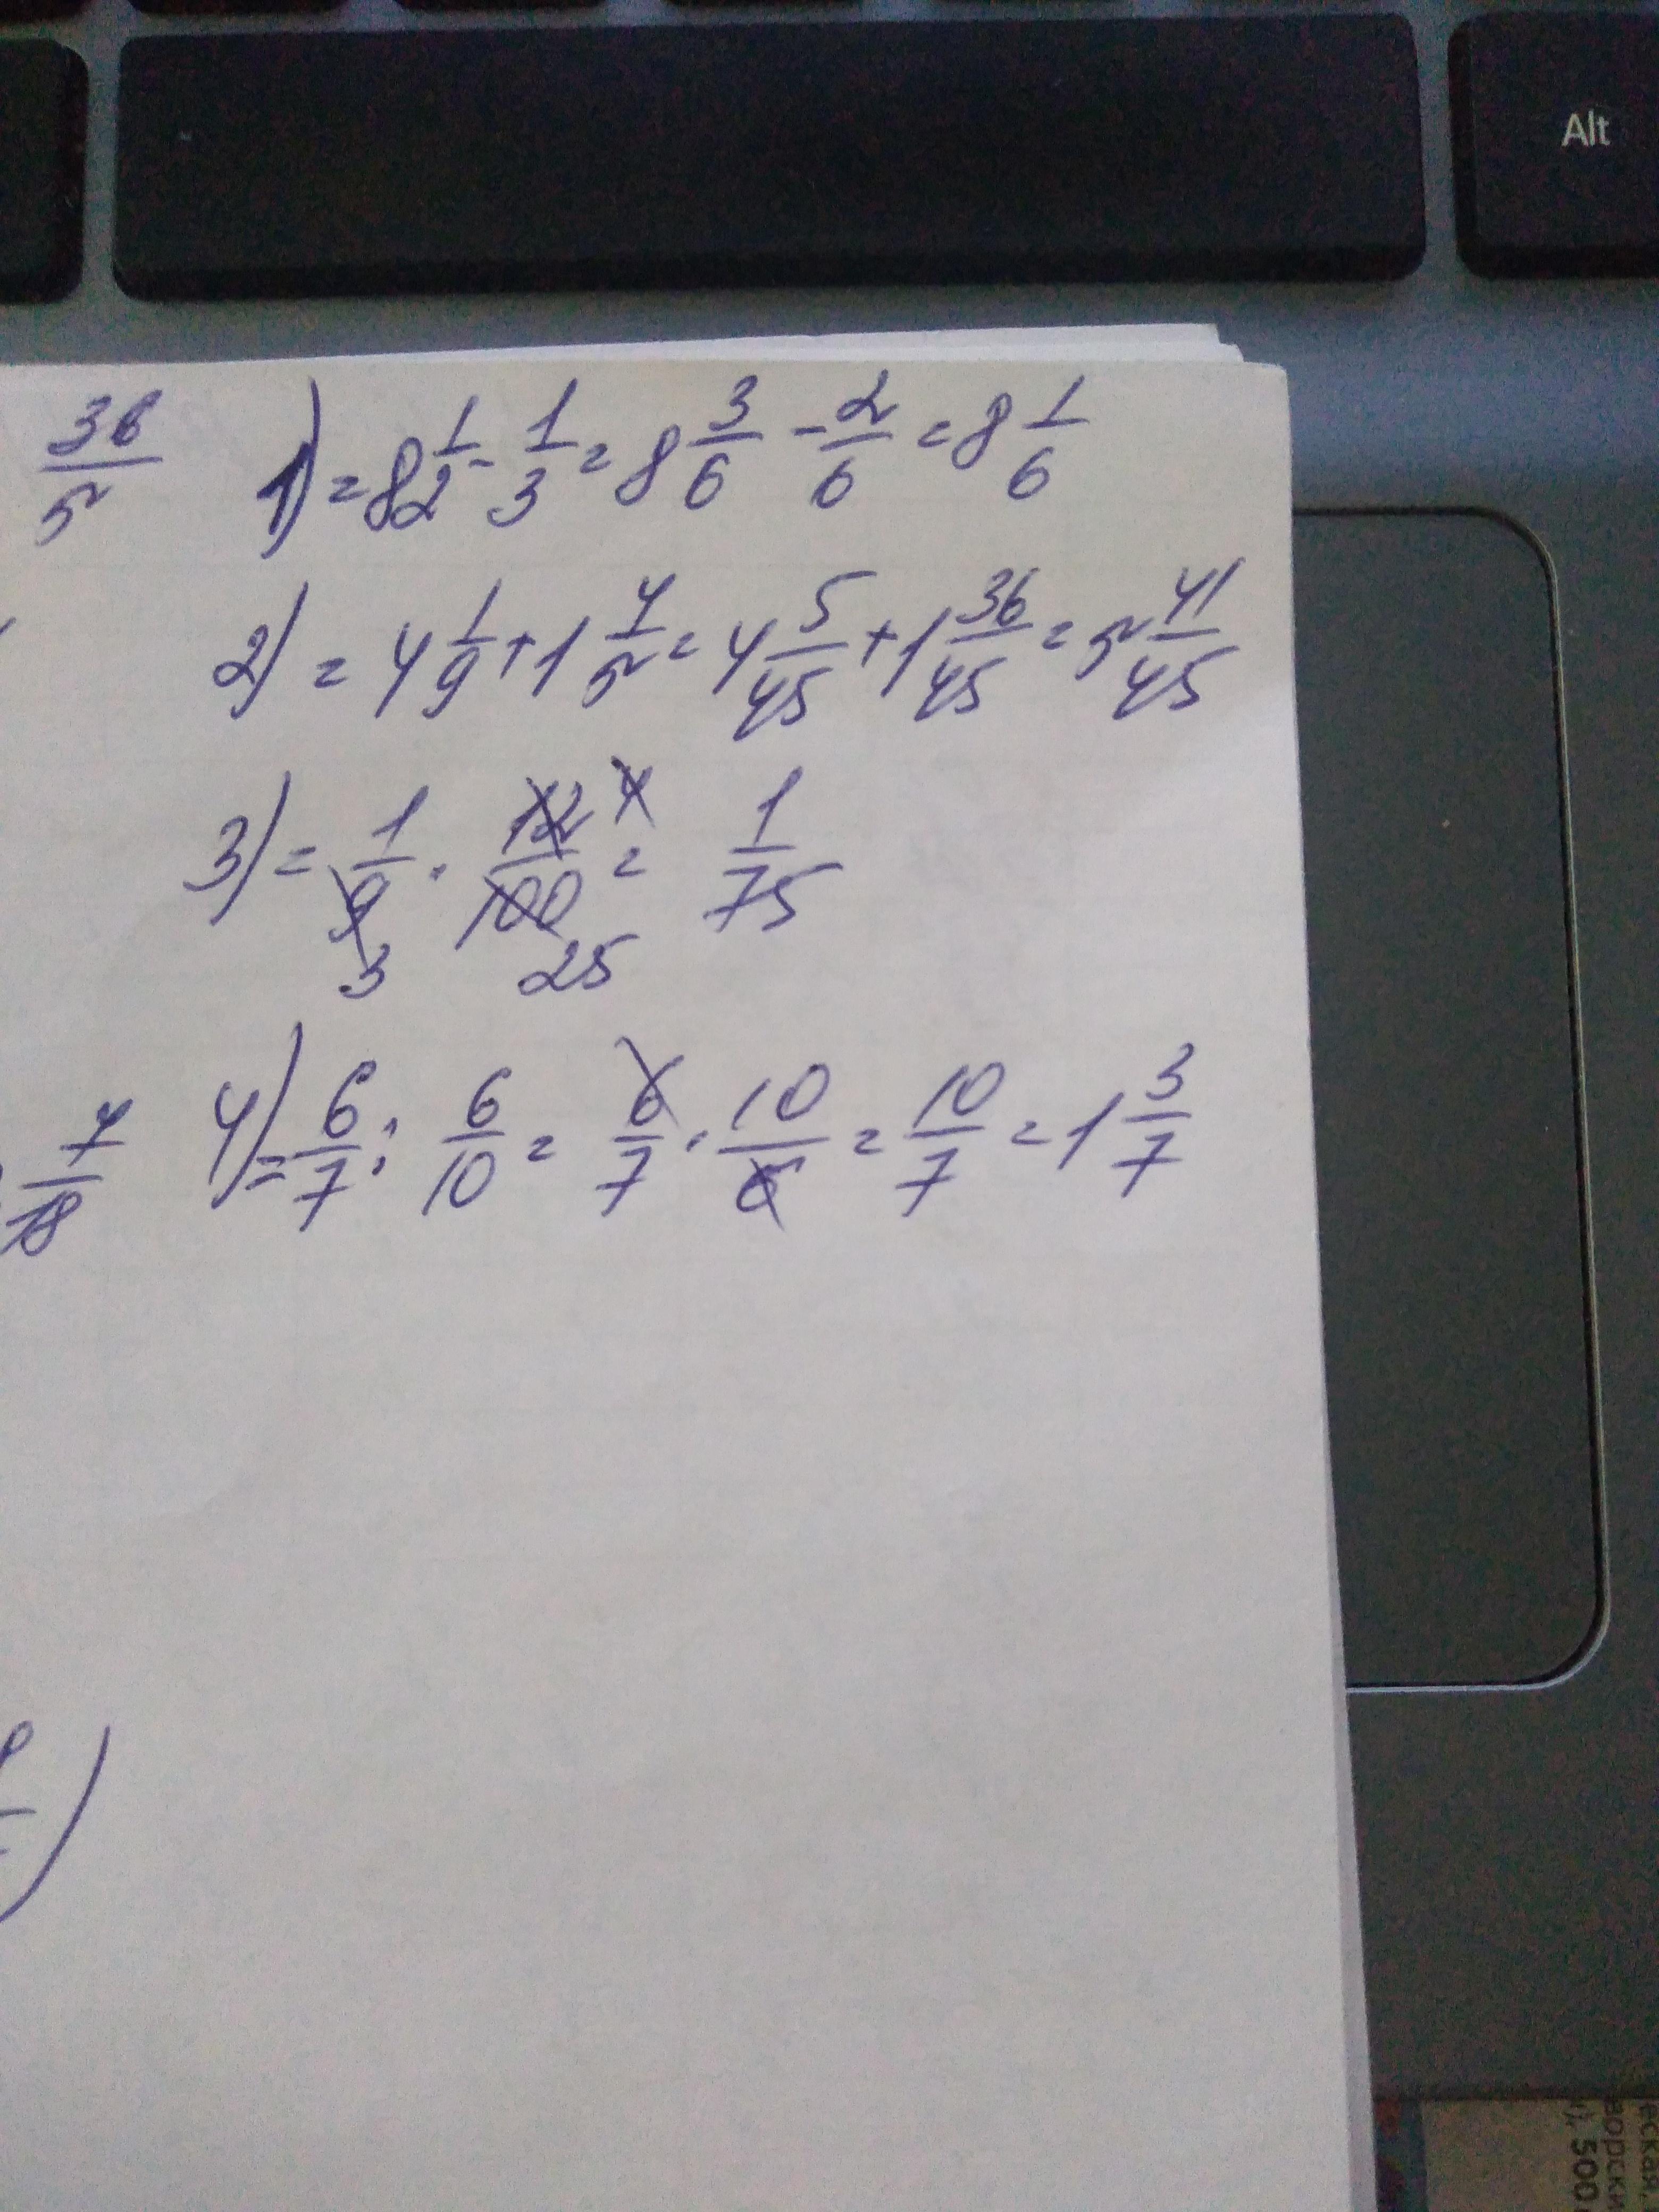 Alt
36/5 1) = 8 1/2 - 1/3 = 8 3/6 - 2/6 = 8 1/6
2) = 4 1/9 + 1 4/5 = 4 5/45 + 1 36/45 = 5 41/45
3) = 1/9 · 12/100 = 1/75
3 25 4
7/18 4) = 6/7 : 6/10 = 6/7 · 10/6 = 10/7 = 1 3/7
)
500
ворски
еская,